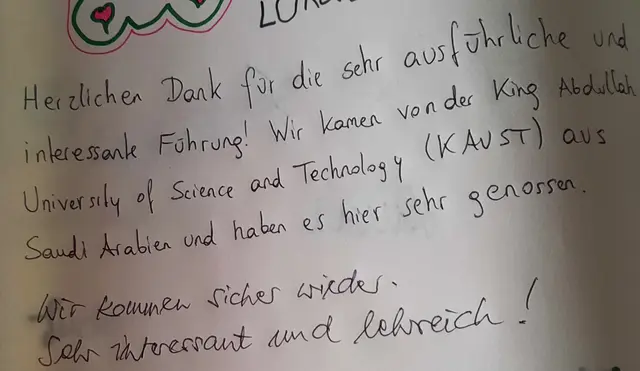 Herzlichen Dank für die sehr ausführliche und
interessante Führung! Wir kamen von der King Abdullah
University of Science and Technology (KAUST) aus
Saudi Arabien und haben es hier sehr genossen.
Wir kommen sicher wieder.
Sehr interessant und lehreich!